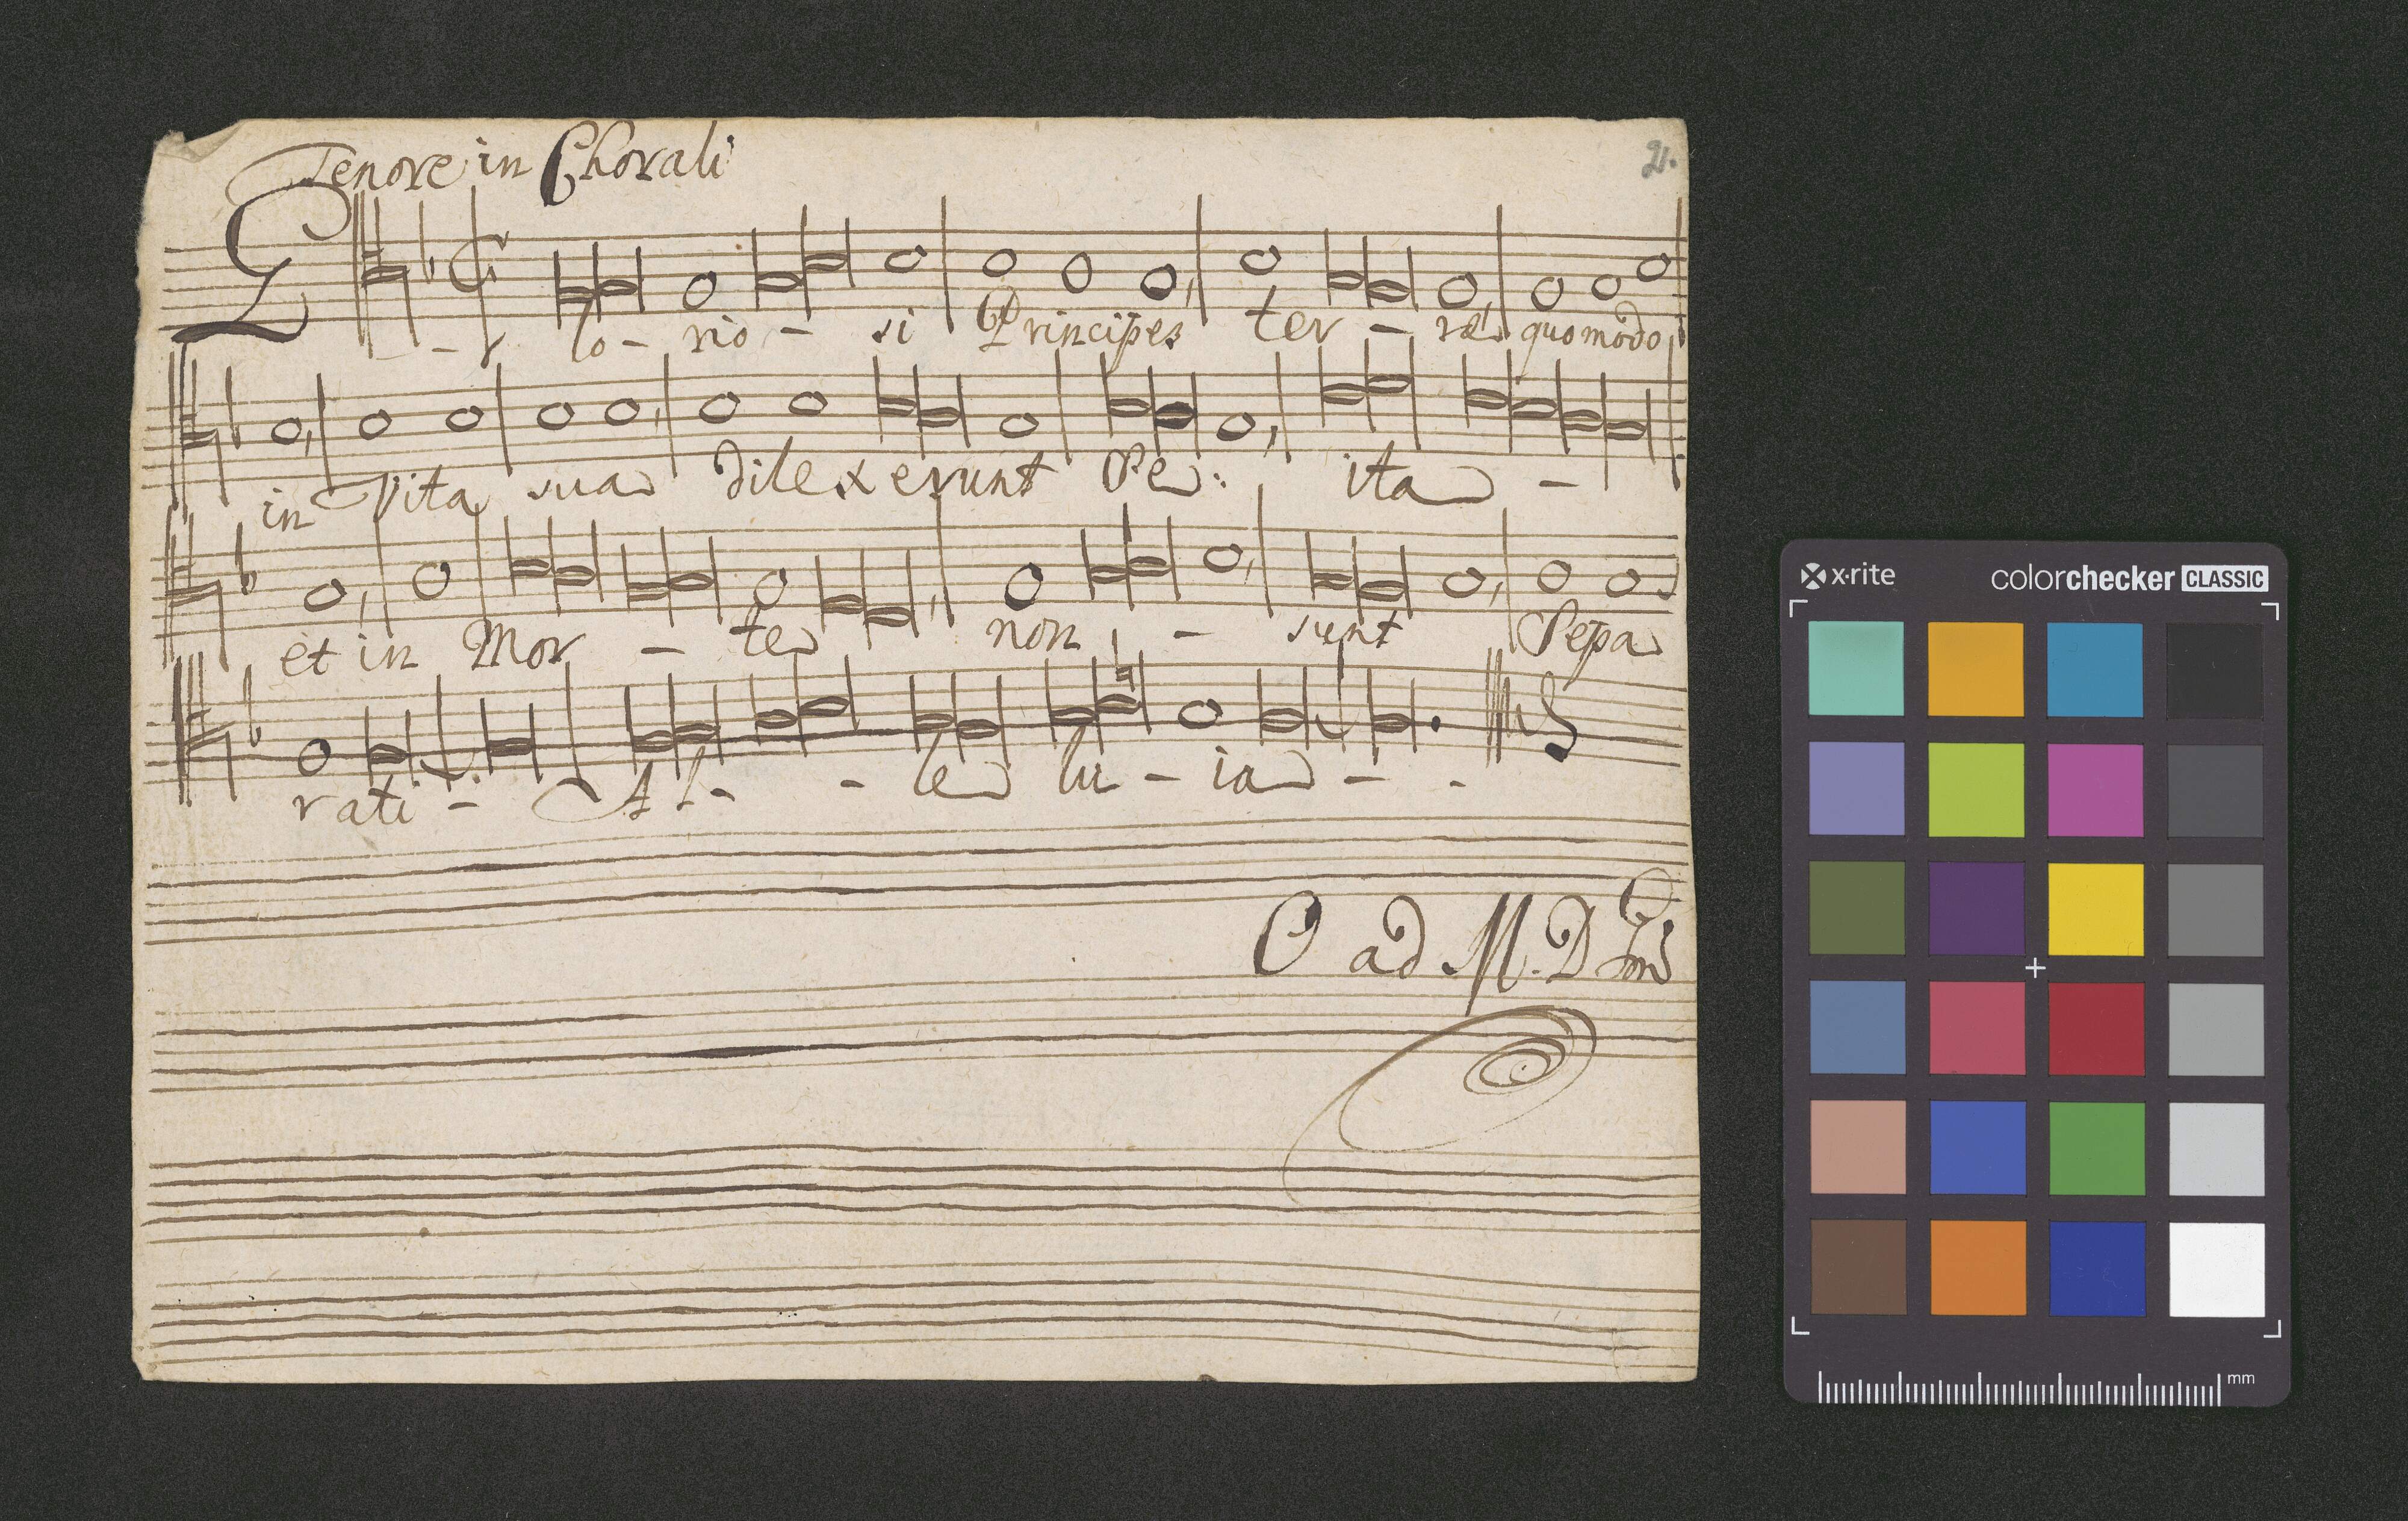 Tenore in Chorali
21.
G - lo - rio - si Principes ter - ræ quomodo
in Vita sua dilexerunt se: ita -
et in Mor - te non - sunt Sepa
rati - Al - - le lu - ia - -
O ad M. D
x-rite colorchecker CLASSIC
mm